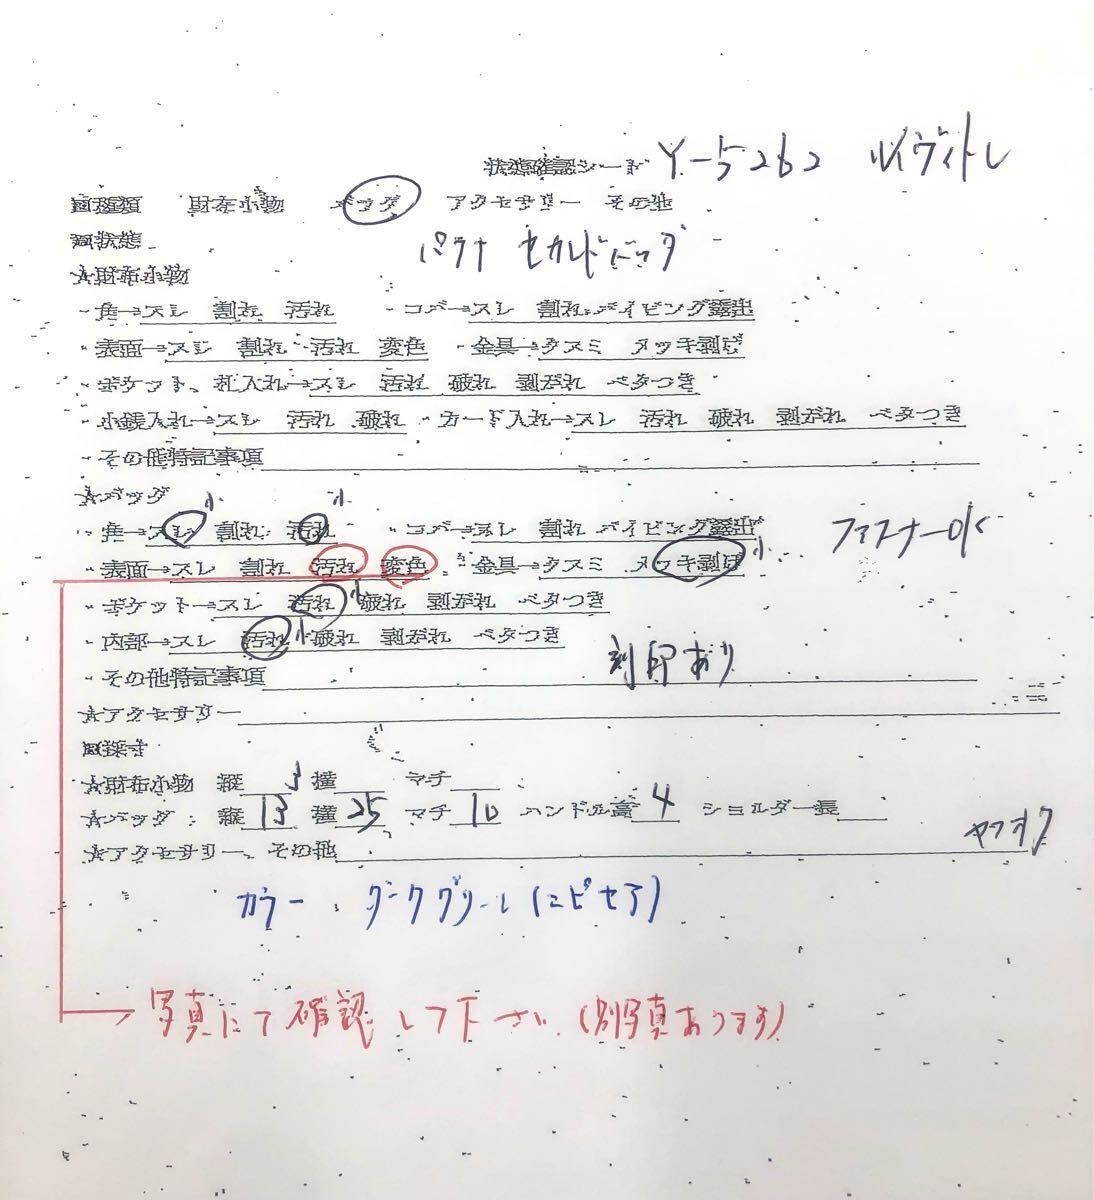 状態確認シート Y-5262 ルイヴィトン
□種類 財布小物 バッグ アクセサリー その他
□状態 パラナ セカンドバッグ
☆財布小物
・角→スレ 割れ 汚れ ・コバ→スレ 割れ パイピング露出
・表面→スレ 割れ 汚れ 変色 ・金具→クスミ メッキ剥げ
・ポケット、札入れ→スレ 汚れ 破れ 剥がれ ベタつき
・小銭入れ→スレ 汚れ 破れ ・カード入れ→スレ 汚れ 破れ 剥がれ ベタつき
・その他特記事項
☆バッグ 小 小
・角→スレ 割れ 汚れ ・コバ→スレ 割れ パイピング露出 ファスナーOK
・表面→スレ 割れ 汚れ 変色 ・金具→クスミ メッキ剥げ 小
・ポケット→スレ 汚れ 小 破れ 剥がれ ベタつき
・内部→スレ 汚れ 小 破れ 剥がれ ベタつき
・その他特記事項 刻印あり
☆アクセサリー
□採寸
☆財布小物 縦 横 マチ
☆バッグ 縦 13 横 25 マチ 10 ハンドル高 4 ショルダー長
☆アクセサリー、その他 ヤフオク
カラー ダークグリーン(エピセア)
写真にて確認して下さい(別写真あります)